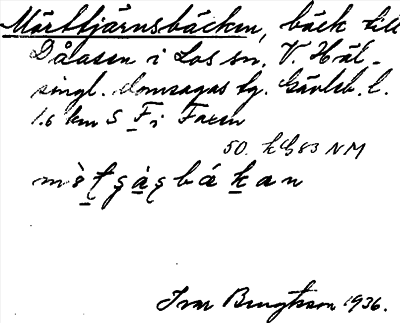 Mörttjärnsbäcken, bäck till
Dåasen i Los sn, V. Häl-
singl. domsagas tg. Gävleb. l.
1.6 km S F i Faxen
50. NM
Ivar Bengtsson 1936.